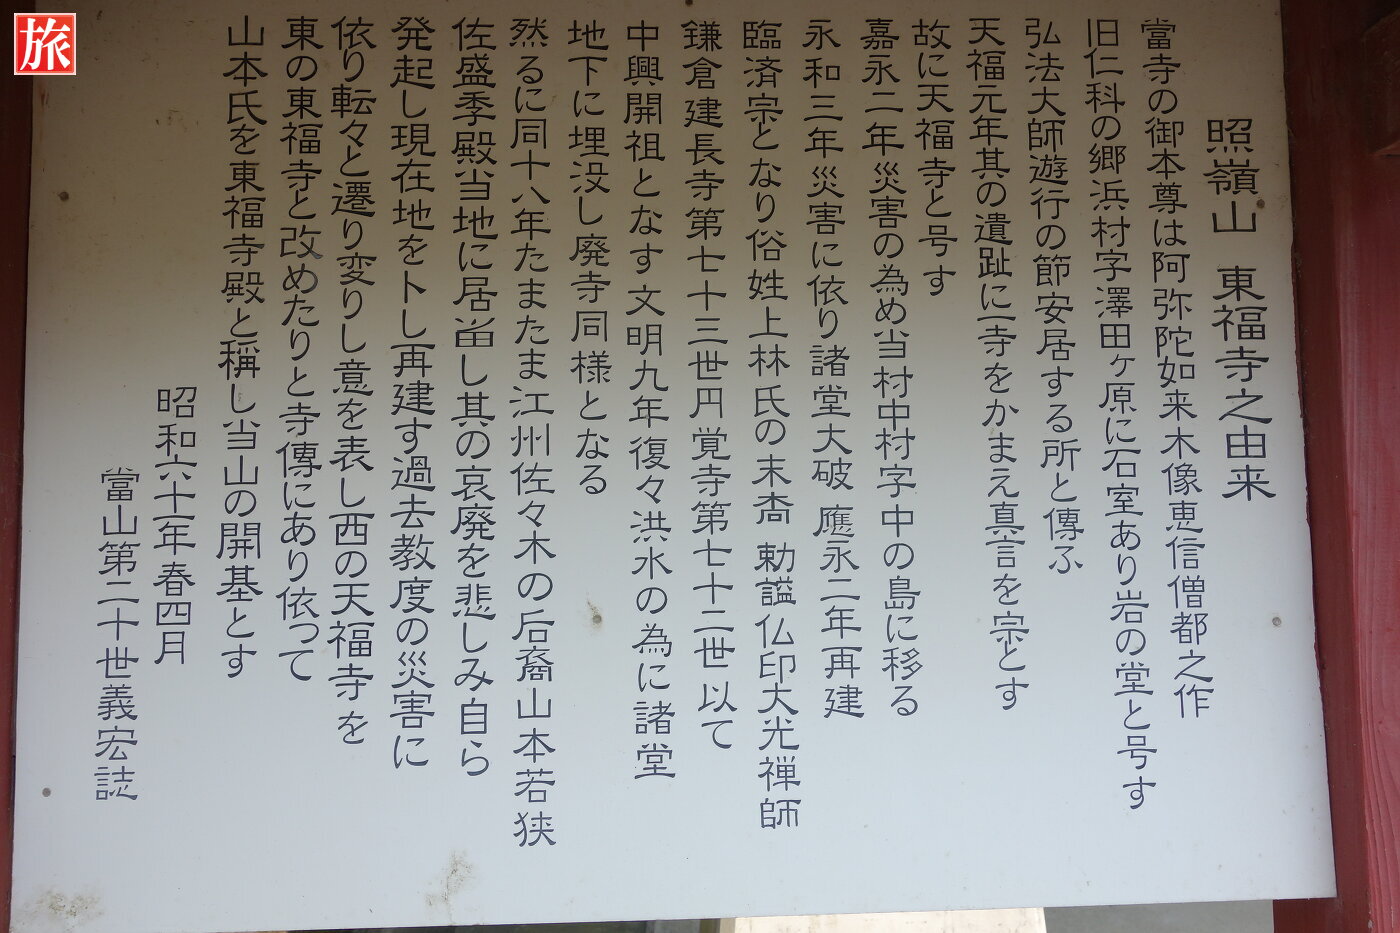 旅
照嶺山 東福寺之由来
當寺の御本尊は阿弥陀如来木像恵信僧都之作
旧仁科の郷浜村字澤田ヶ原に石室あり岩の堂と号す
弘法大師遊行の節安居する所と傳ふ
天福元年其の遺趾に一寺をかまえ真言を宗とす
故に天福寺と号す
嘉永二年災害の為め当村中村字中の島に移る
永和三年災害に依り諸堂大破 應永二年再建
臨済宗となり俗姓上林氏の末裔 勅謚仏印大光禅師
鎌倉建長寺第七十三世円覚寺第七十二世 以て
中興開祖となす 文明九年復々洪水の為に諸堂
地下に埋没し廃寺同様となる
然るに同十八年たまたま江州佐々木の后裔山本若狭
佐盛季殿当地に居畄し其の哀廃を悲しみ自ら
発起し現在地を卜し再建す過去教度の災害に
依り転々と遷り変りし意を表し西の天福寺を
東の東福寺と改めたりと寺傳にあり依って
山本氏を東福寺殿と稱し当山の開基とす
昭和六十一年春四月
當山第二十世義宏誌